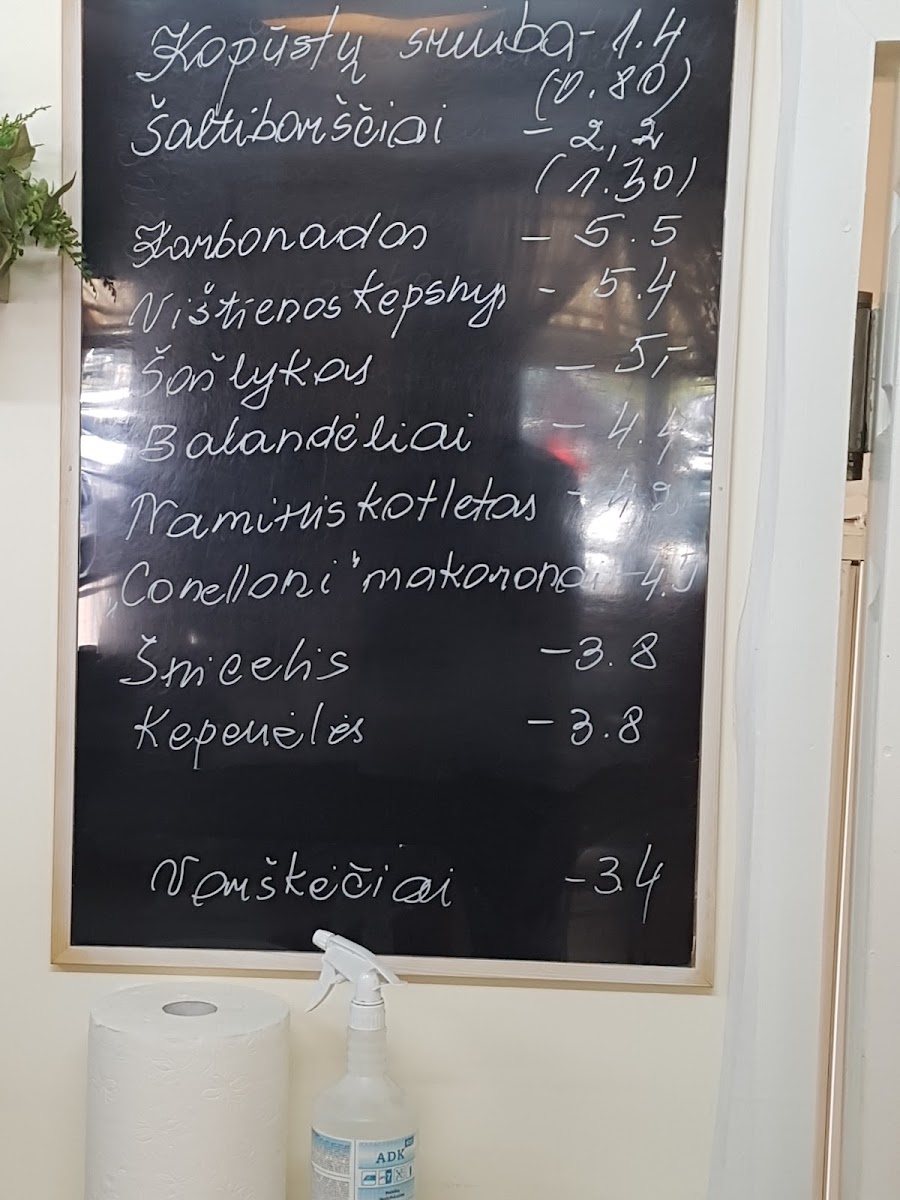 Kopūstų sriuba - 1.4
(0.80)
Šaltibarščiai - 2,2
(1.30)
Karbonadas - 5.5
Vištienos kepsnys - 5.4
Šašlykas - 5,-
Balandėliai - 4.4
Naminis kotletas -
„Conelloni" makaronai - 4.5
Šnicelis - 3.8
Kepenėlės - 3.8
Varškėčiai - 3.4
ADK